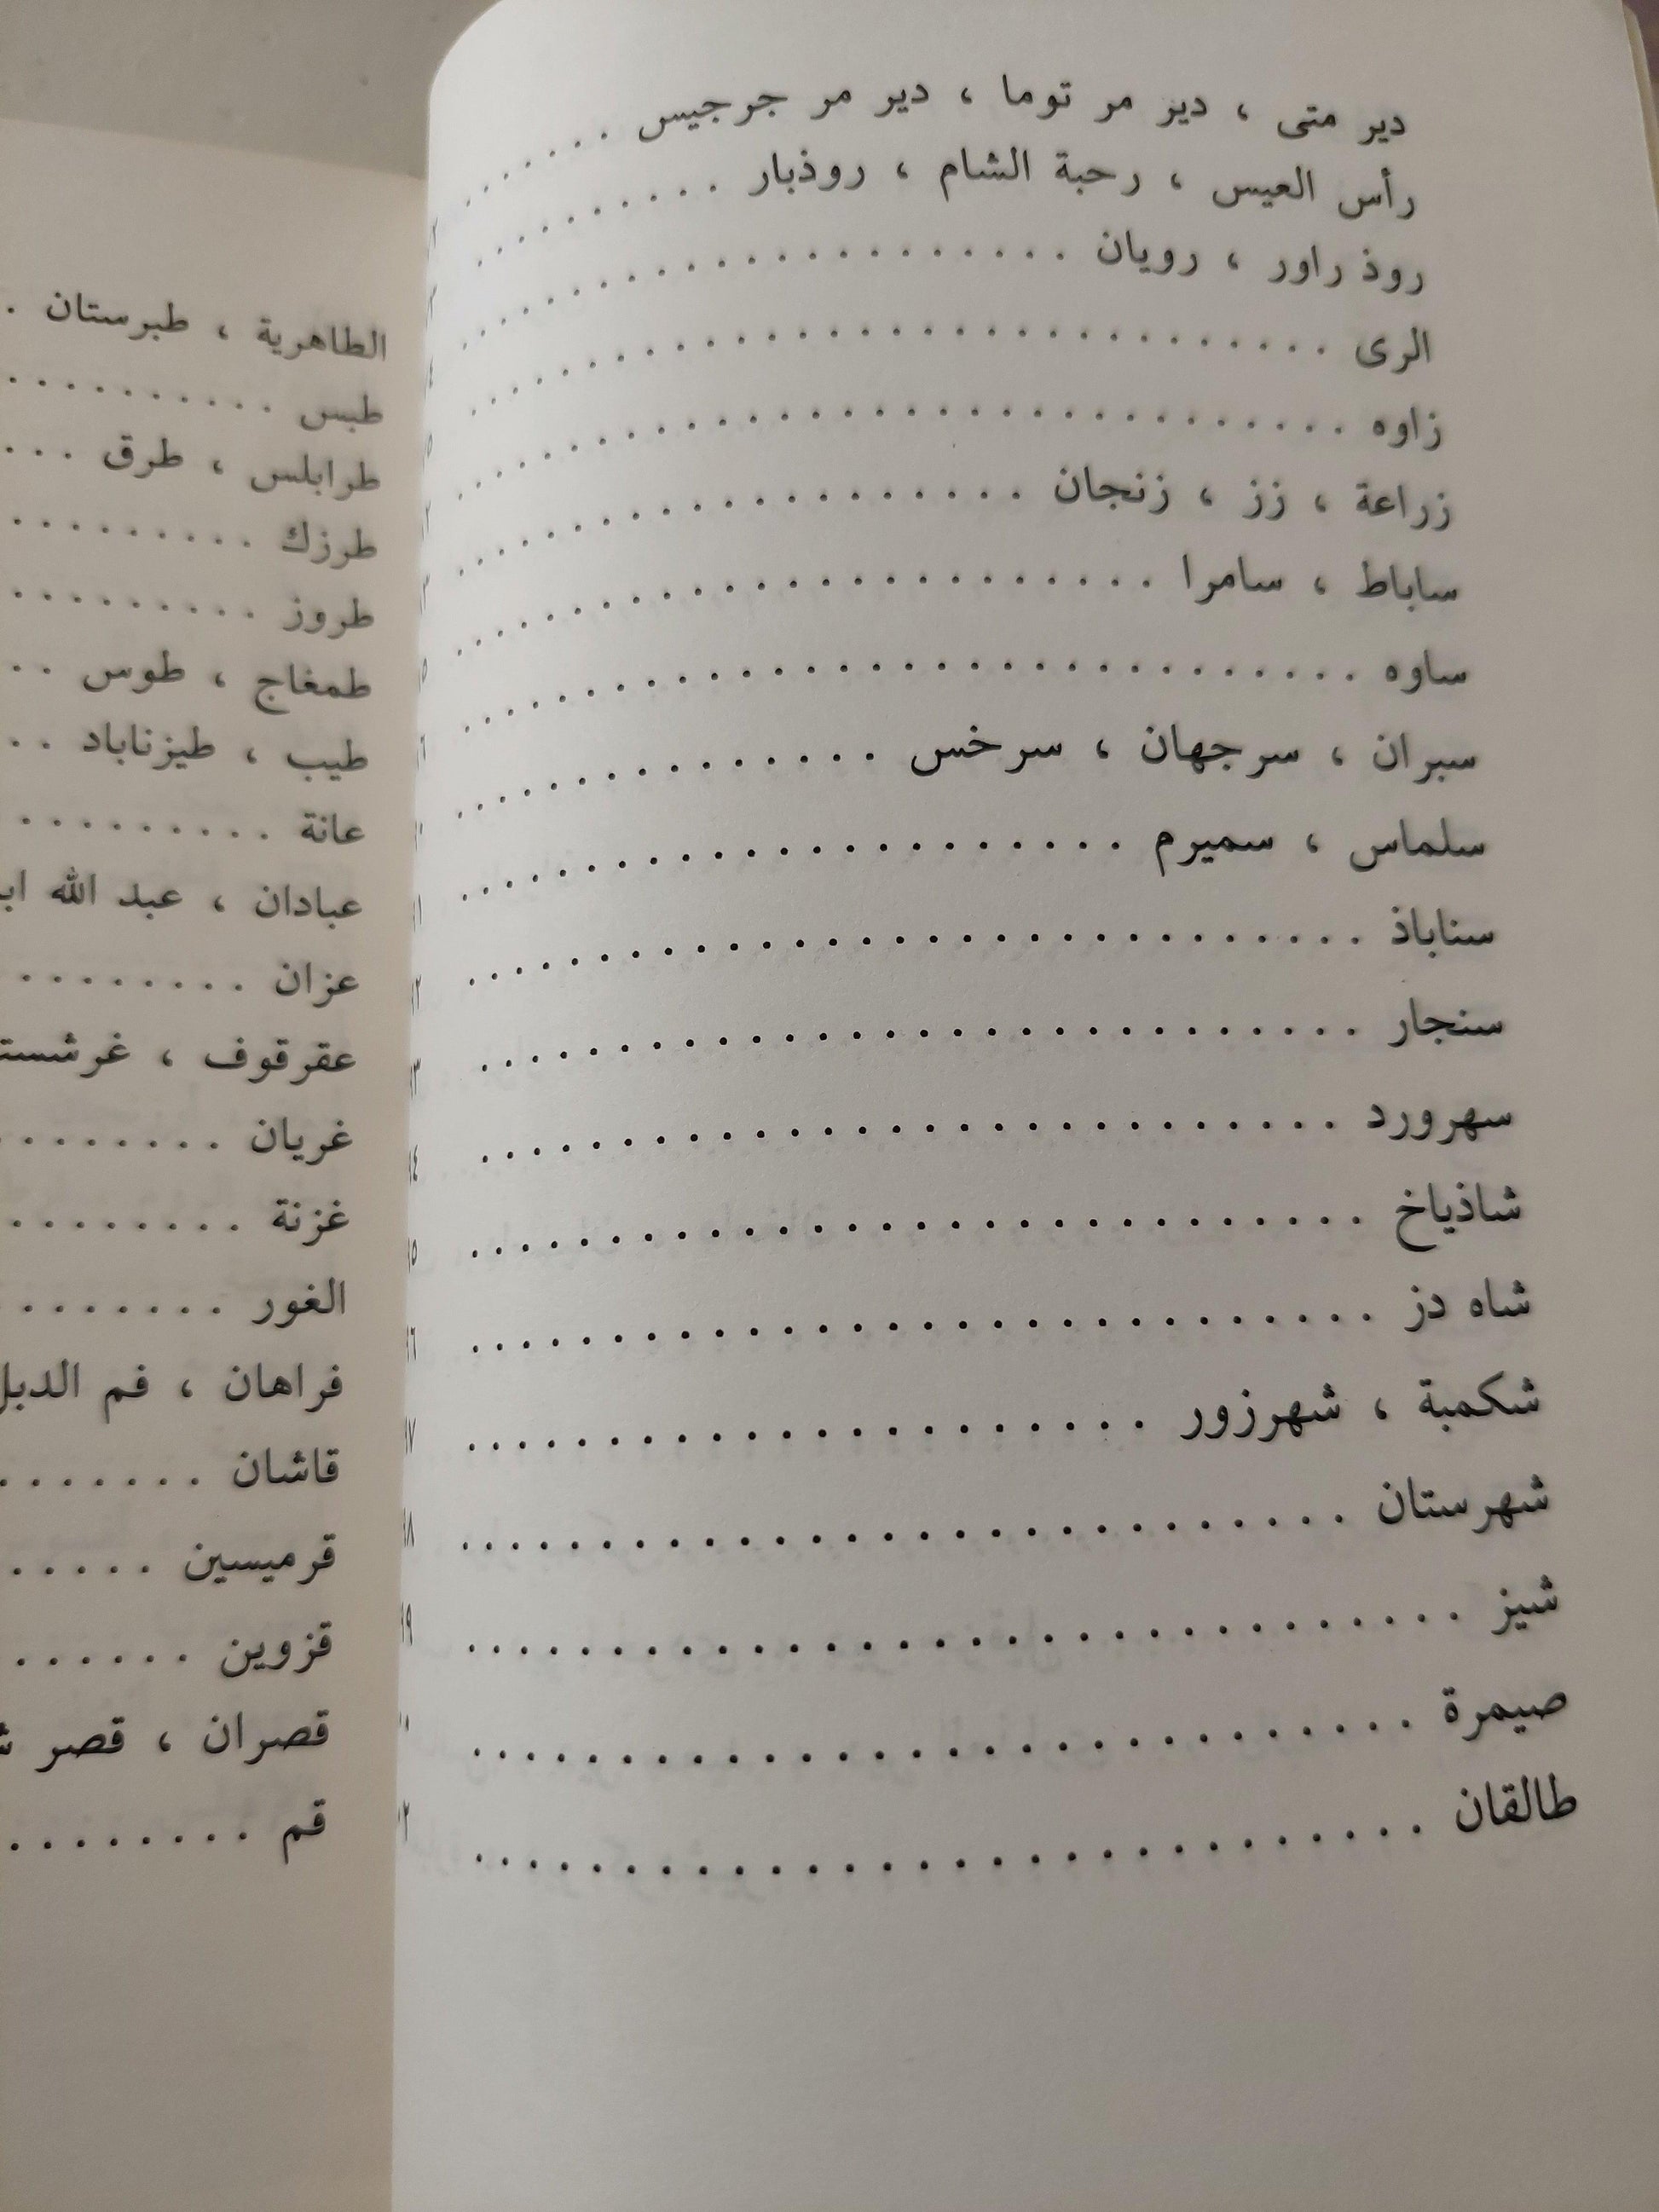 دير متى ، دير مر توما ، دير مر جرجيس
رأس العيس ، رحبة الشام ، روذبار
روذ راور ، رويان
الرى
زاوه
زراعة ، زز ، زنجان
ساباط ، سامرا
ساوه
سبران ، سرجهان ، سرخس
سلماس ، سميرم
سناباذ
سنجار
سهرورد
شاذياخ
شاه دز
شكمبة ، شهرزور
شهرستان
شيز
صيمرة
طالقان
الطاهرية ، طبرستان
طبس
طرابلس ، طرق
طرزك
طروز
طمغاج ، طوس
طيب ، طيزناباد
عانة
عبادان ، عبد الله
عزان
عقرقوف ،
غريان
غزنة
الغور
فراهان ، فم
قاشان
قرميسين
قزوين
قصران ، قصر
قم